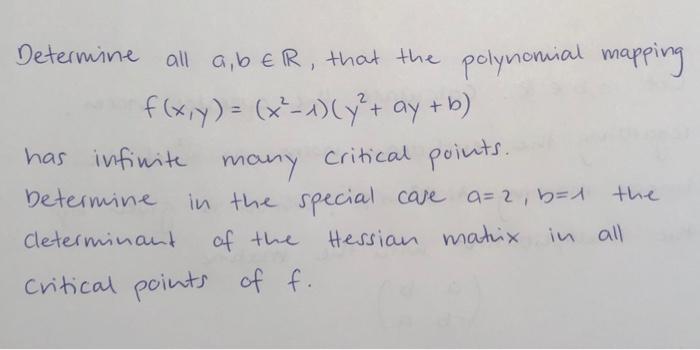 Determine all a,b ∈ ℝ, that the polynomial mapping
f(x,y) = (x²-1)(y²+ ay + b)
has infinite many critical points.
Determine in the special case a=2, b=1 the
determinant of the Hessian matrix in all
critical points of f.